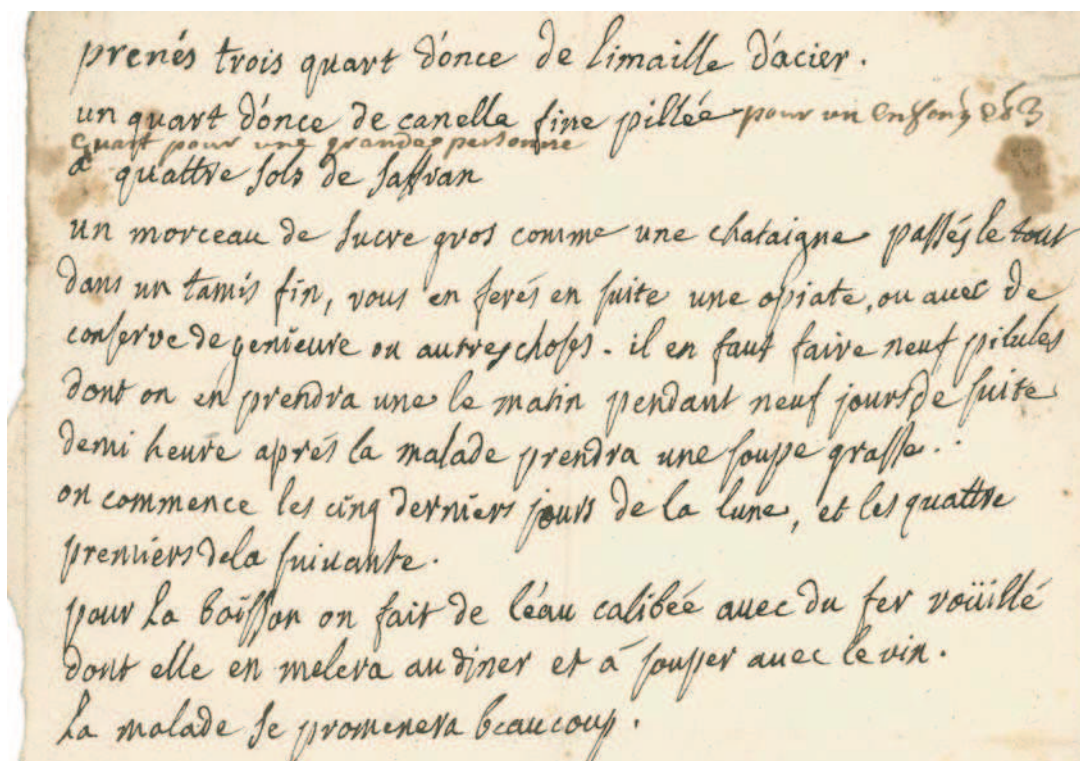 prenés trois quart d'once de limaille d'acier.
un quart d'once de canella fine pillée pour un enfant et 3
quart pour une grande personne
quattre sols de saffran
un morceau de sucre gros comme une chataigne passés le tout
dans un tamis fin, vous en ferés en suite une opiate, ou avec de
conserve de genieure ou autres choses. il en faut faire neuf pilules
dont on en prendra une le matin pendant neuf jours de suite
demi heure aprés la malade prendra une soupe grasse.
on commence les cinq derniers jours de la lune, et les quattre
premiers de la suivante.
pour la boisson on fait de l'éau calibée avec du fer roüillé
dont elle en melera au diner et á souper avec le vin.
la malade se promenera beaucoup.